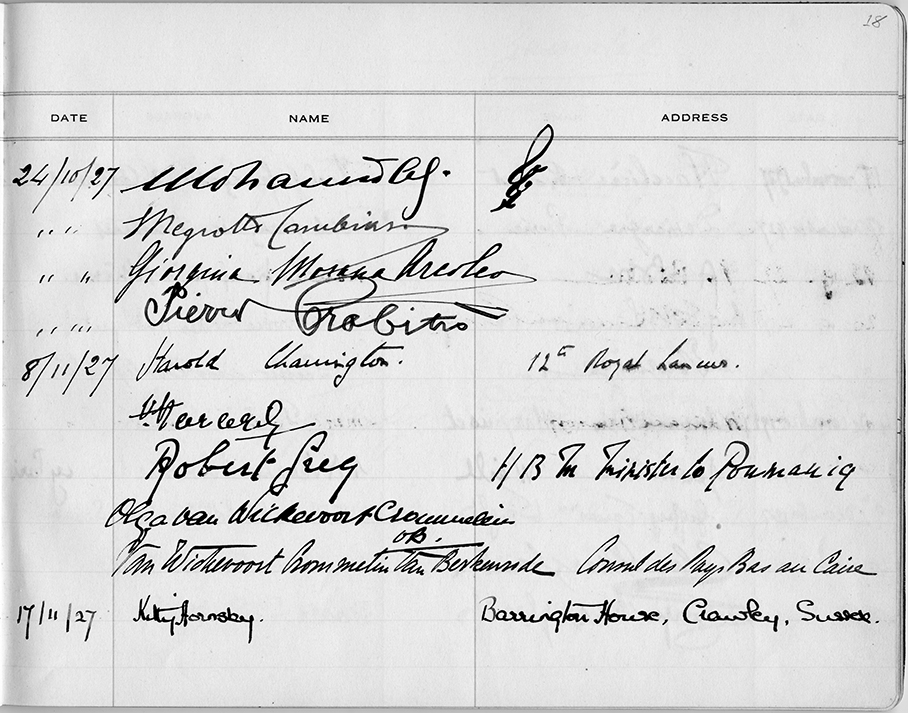 18
DATE NAME ADDRESS
24/10/27 Mohamed Aly.
" " Negrotto Cambiaso
" " Giorgina Mosana Areoleo
" " Pierre Crabitès
8/11/27 Harold Charrington. 12th Royal Lancers.
Robert Greg H B M Minister to Roumania
Olga van Wickevoort Crommelin
OB.
Van Wickevoort Crommelin Van Berkenrode Consul des Pays Bas au Caire
17/11/27 Kitty Hornsby. Barrington House, Crawley, Sussex.